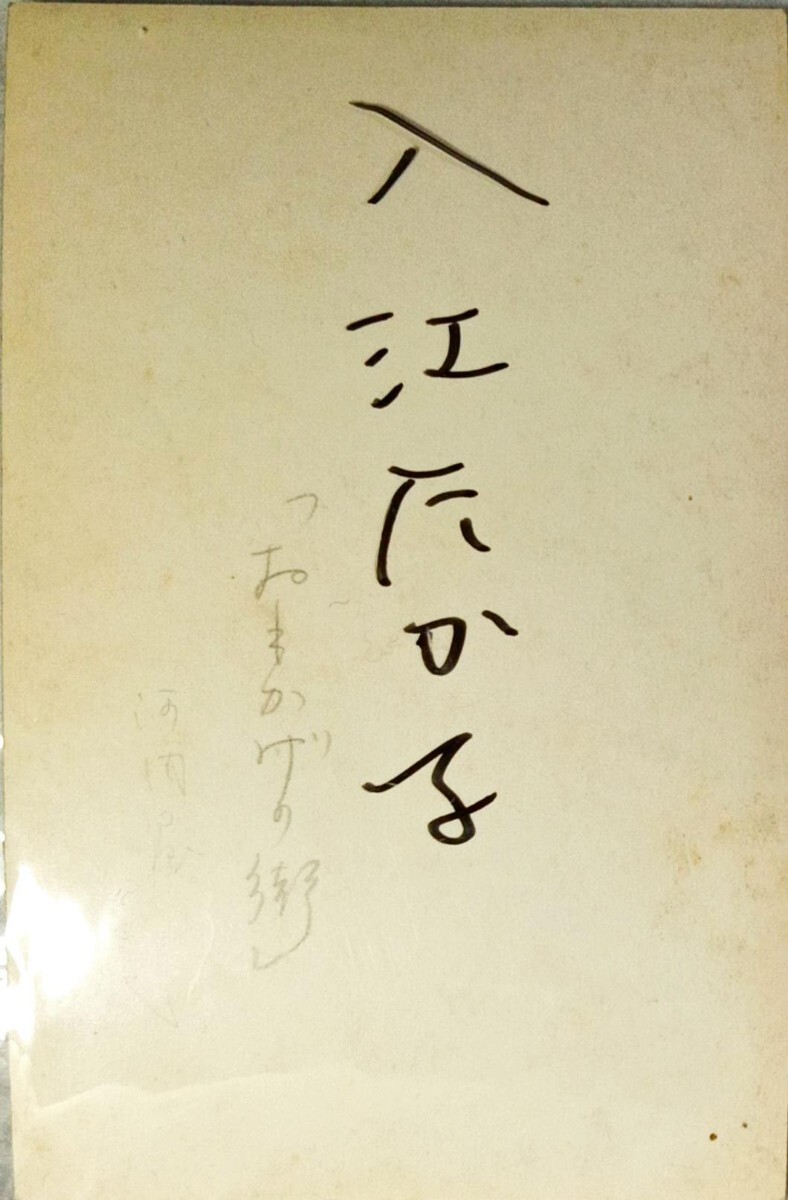 入江たか子
「おもかげの街」
河内屋